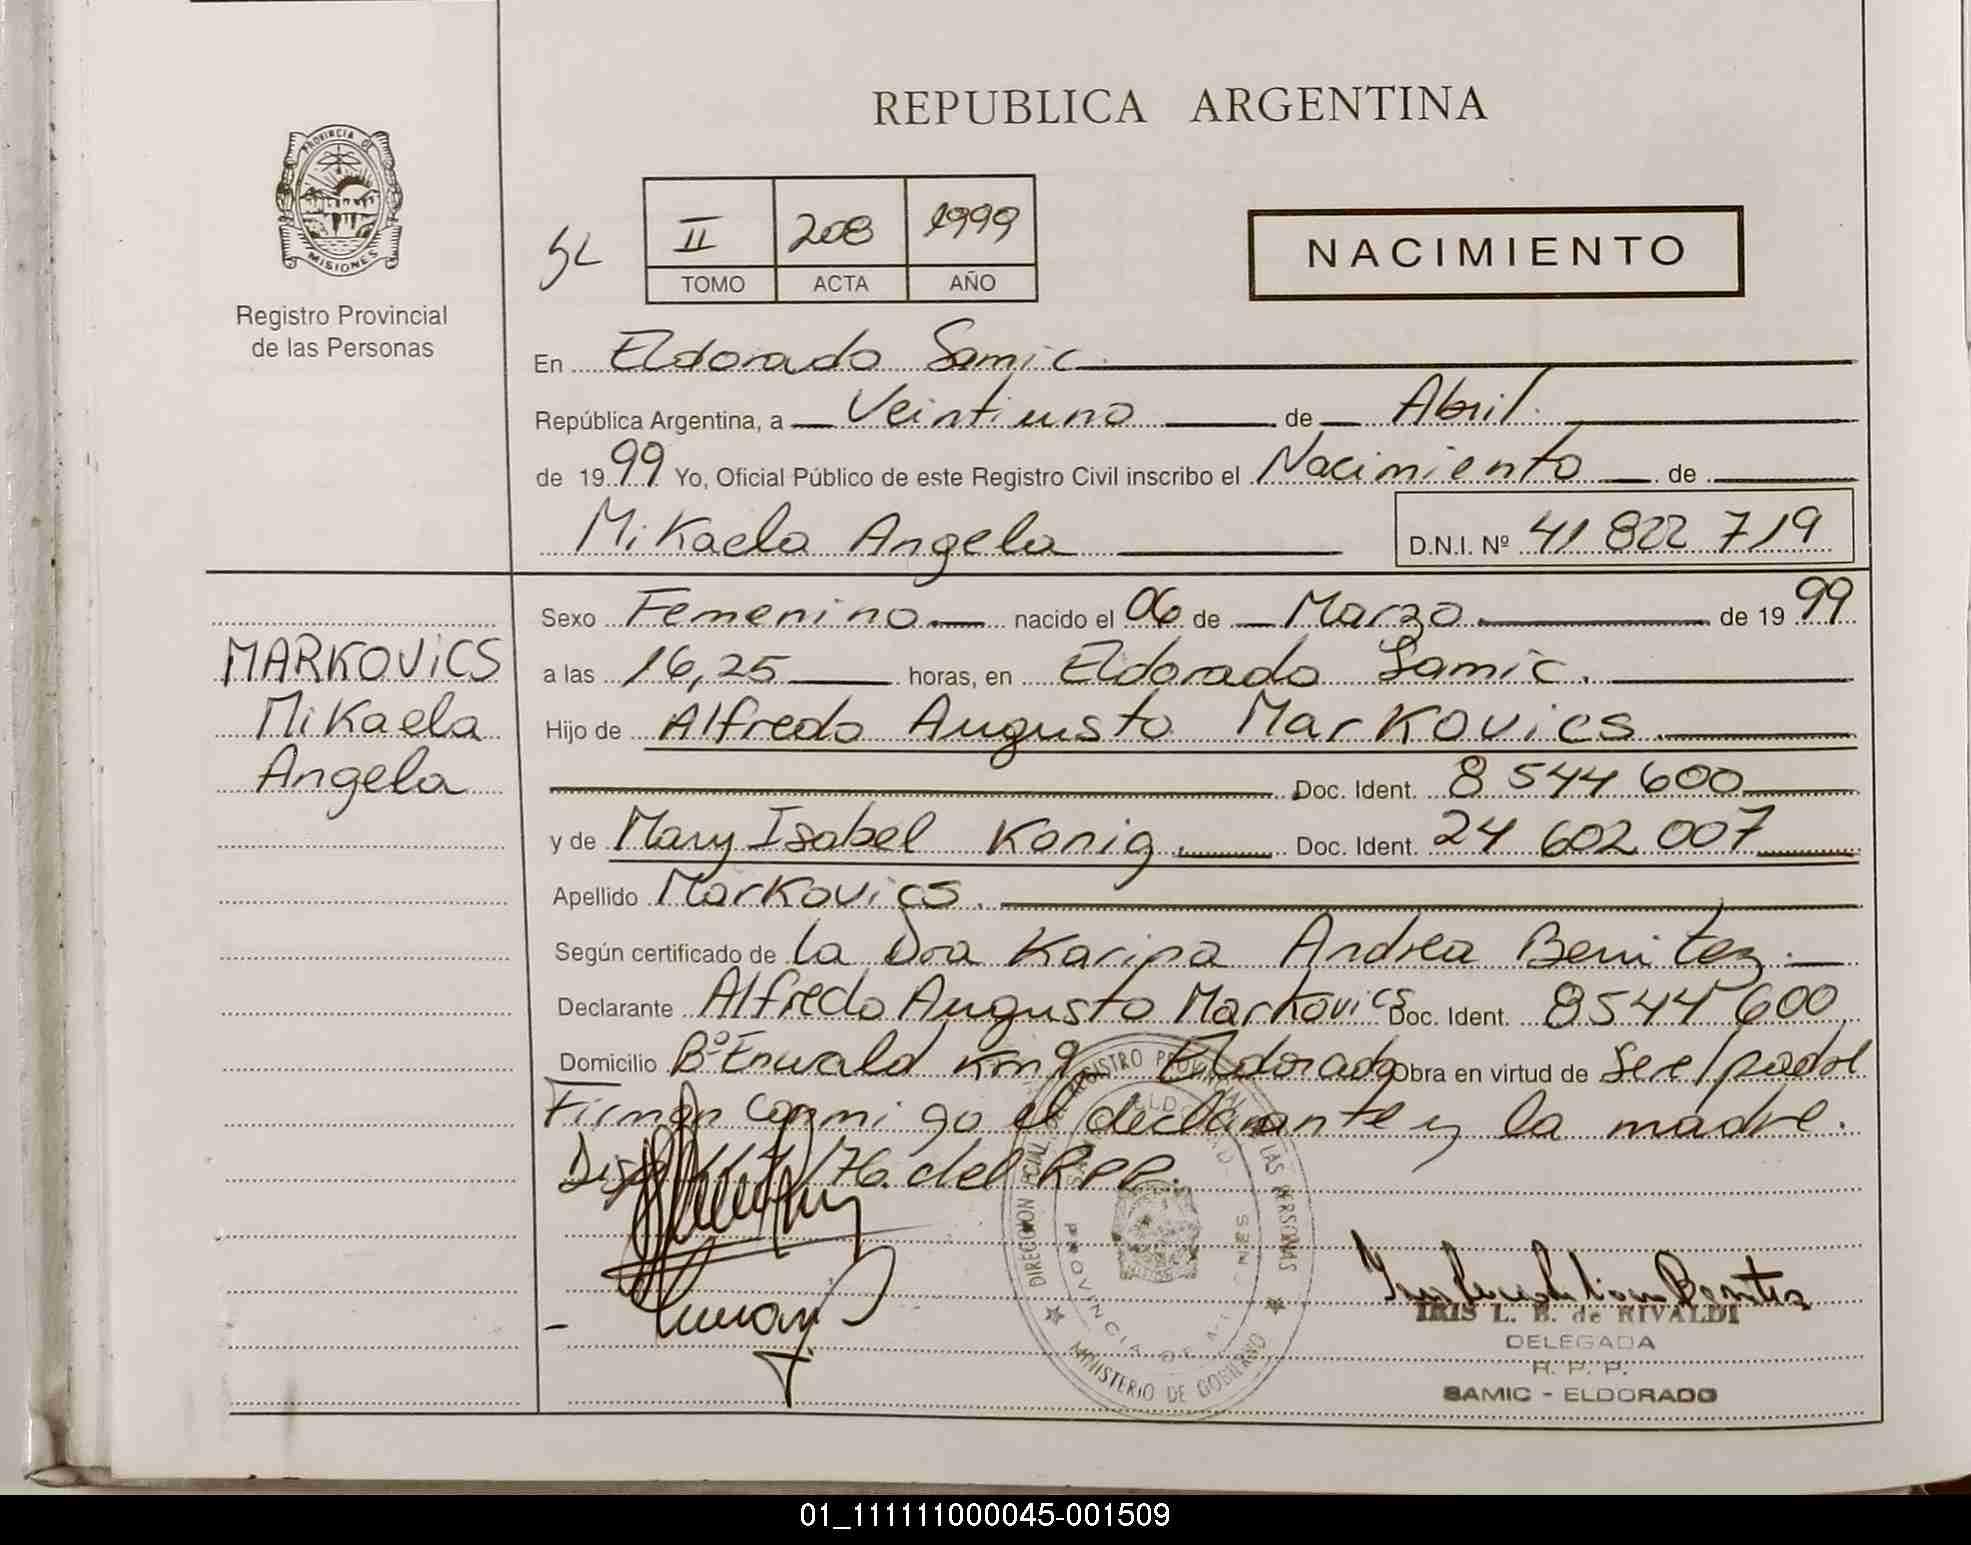 REPUBLICA ARGENTINA
PROVINCIA DE
MISIONES
Registro Provincial
de las Personas
SL
II 208 1999
TOMO ACTA AÑO
NACIMIENTO
En Eldorado Samic.
República Argentina, a Veintiuno de Abril.
de 1999 Yo, Oficial Público de este Registro Civil inscribo el Nacimiento de
Mikaela Angela D.N.I. Nº 41 822 719
MARKOVICS
Mikaela
Angela
Sexo Femenino nacido el 06 de Marzo de 1999
a las 16,25 horas, en Eldorado Samic.
Hijo de Alfredo Augusto Markovics.
Doc. Ident. 8 544 600
y de Mary Isabel Konig. Doc. Ident. 24 602 007
Apellido Markovics.
Según certificado de la Dra Karina Andrea Benitez.
Declarante Alfredo Augusto Markovics Doc. Ident. 8544 600
Domicilio Bº Enwald Eldorado Obra en virtud de ser el padre
Firman conmigo el declarante y la madre.
/76 del RPP.
DIRECCION REGISTRO PROVINCIAL DE LAS PERSONAS
ELDORADO
PROVINCIA DE MISIONES
MINISTERIO DE GOBIERNO
IRIS L. B. de RIVALDI
DELEGADA
R. P. P.
SAMIC - ELDORADO
01_111111000045-001509